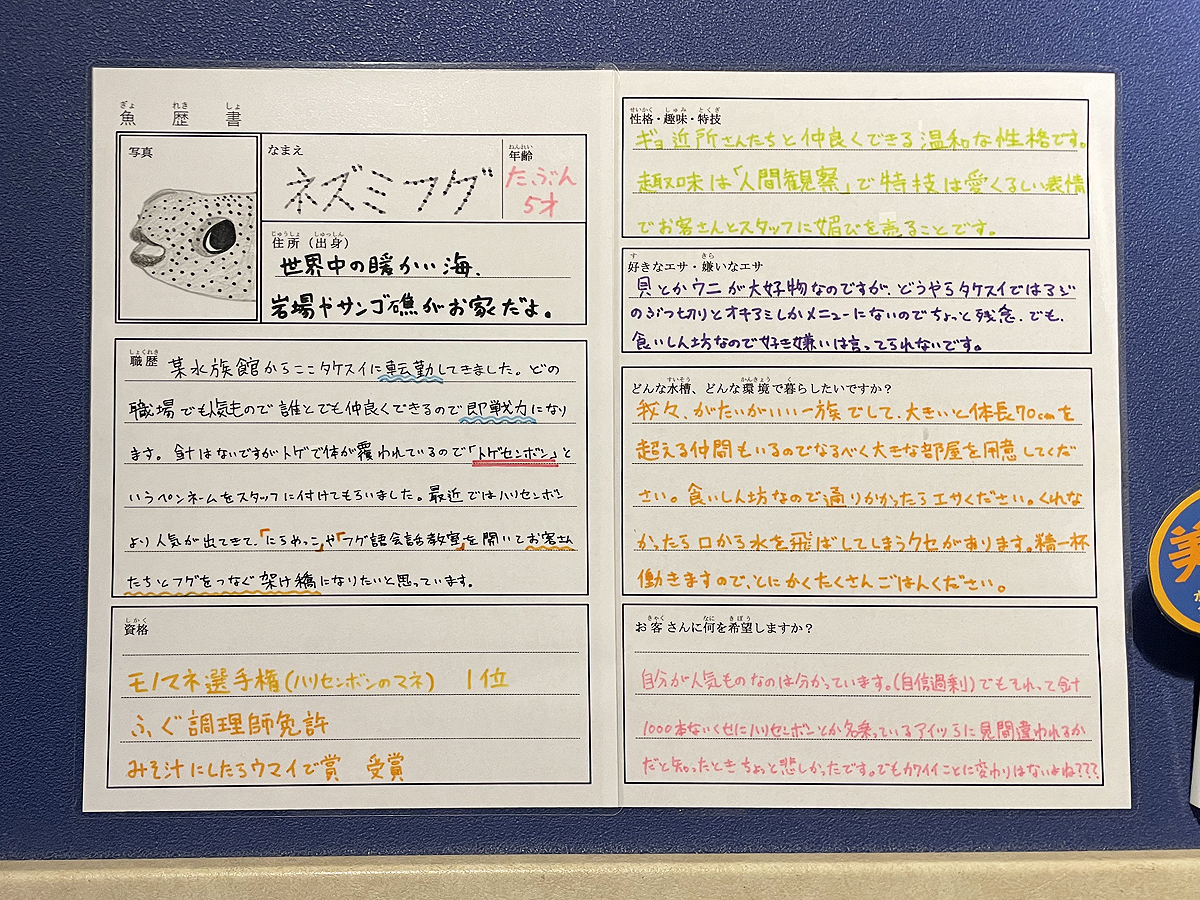 魚歴書
ぎょ れき しょ
写真
なまえ
ネズミフグ
ねんれい
年齢
たぶん
5才
じゅうしょ しゅっしん
住所（出身）
世界中の暖かい海、
岩場やサンゴ礁がお家だよ。
しょくれき
職歴
某水族館からここタケスイに転勤してきました。どの
職場でも人気もので誰とでも仲良くできるので即戦力になり
ます。針はないですがトゲで体が覆われているので「トゲセンボン」と
いうペンネームをスタッフに付けてもらいました。最近ではハリセンボン
より人気が出てきて、「にらめっこ」や「フグ語会話教室」を開いてお客さん
たちとフグをつなぐ架け橋になりたいと思っています。
しかく
資格
モノマネ選手権(ハリセンボンのマネ) 1位
ふぐ調理師免許
みそ汁にしたらウマイで賞 受賞
せいかく しゅみ とくぎ
性格・趣味・特技
ギョ近所さんたちと仲良くできる温和な性格です。
趣味は「人間観察」で特技は愛くるしい表情
でお客さんとスタッフに媚びを売ることです。
す きら
好きなエサ・嫌いなエサ
貝とかウニが大好物なのですが、どうやらタケスイではアジ
のぶつ切りとオキアミしかメニューにないのでちょっと残念、でも、
食いしん坊なので好き嫌いは言ってられないです。
すいそう かんきょう く
どんな水槽、どんな環境で暮らしたいですか？
我々、がたいがいい一族でして、大きいと体長70cmを
超える仲間もいるのでなるべく大きな部屋を用意してくだ
さい。食いしん坊なので通りかかったらエサください。くれな
かったら口から水を飛ばしてしまうクセがあります。精一杯
働きますので、とにかくたくさんごはんください。
きゃく なに きぼう
お客さんに何を希望しますか？
自分が人気ものなのは分かっています。(自信過剰)でもそれって針
1000本ないくせにハリセンボンとか名乗っているアイツらに見間違われるか
らだと知ったときちょっと悲しかったです。でもカワイイことに変わりはないよね???
美